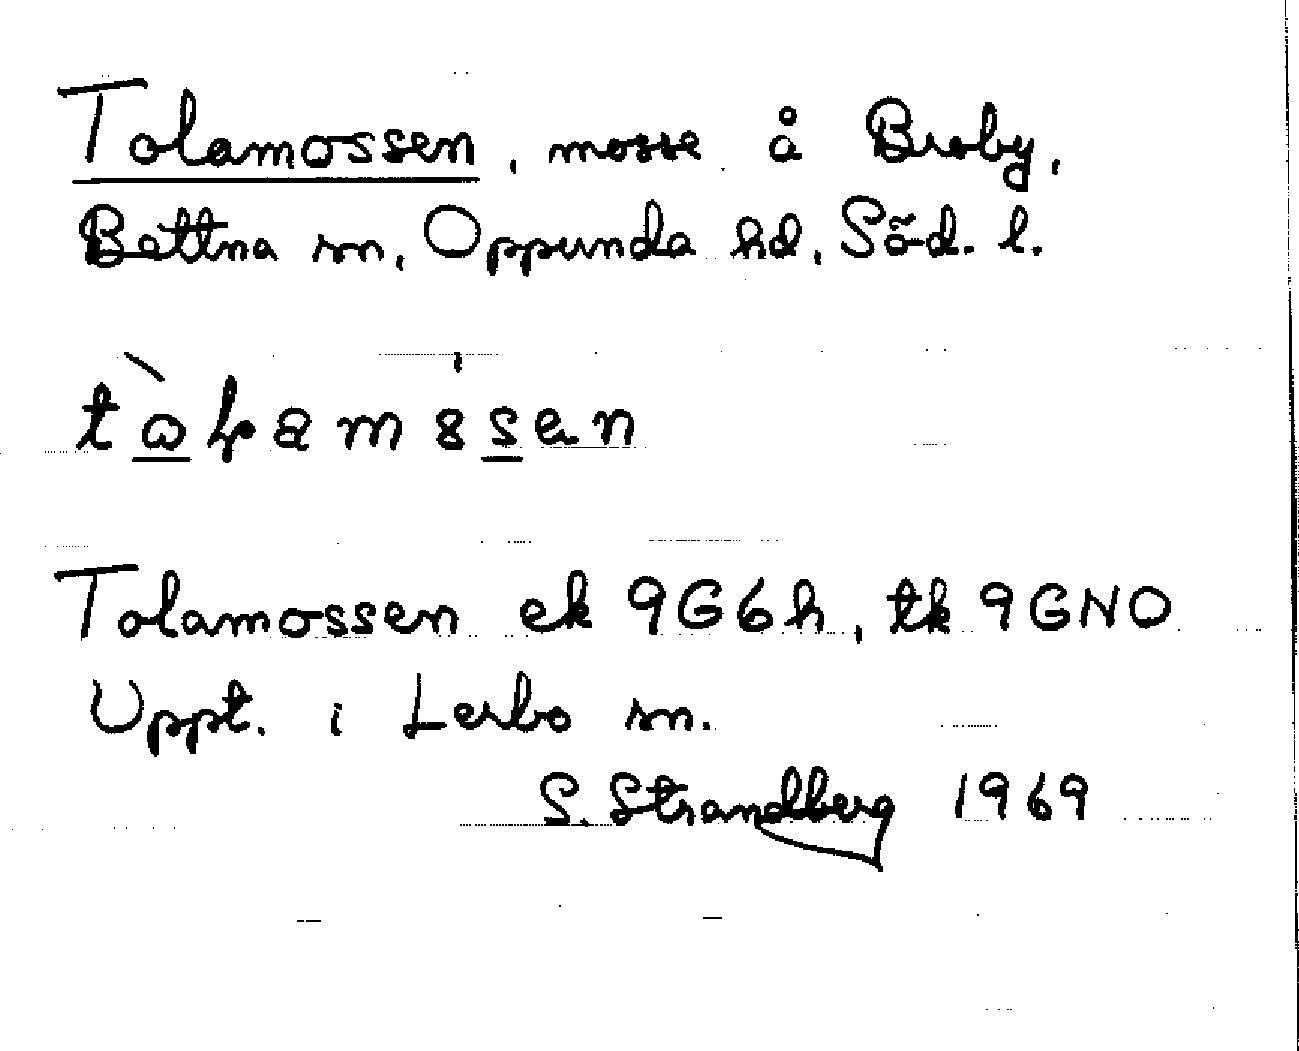 Tolamossen, mosse å Broby,
Bettna sn, Oppunda hd, Söd. l.
Tolamossen ek 9G6h, tk 9GNO
Uppt. i Lerbo sn.
S. Strandberg 1969